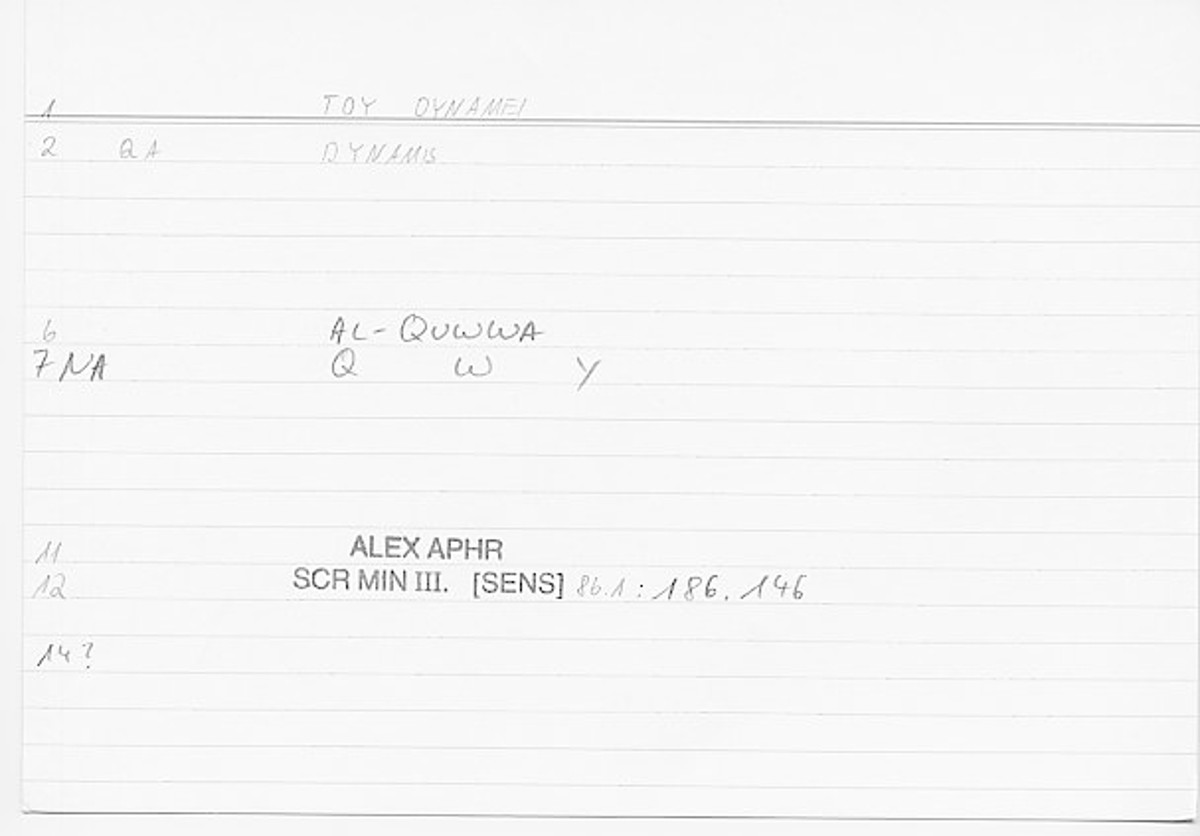 1 TOY DYNAMEI
2 QA DYNAMIS
6 AL-QUWWA
7 NA Q W Y
11 ALEX APHR
12 SCR MIN III. [SENS] 86.1 : 186.146
14?